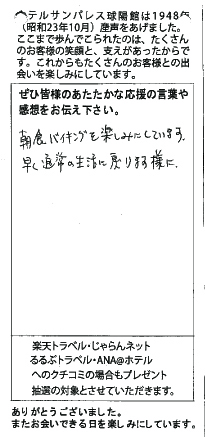 ホテルサンパレス球陽館は1948年
（昭和23年10月）産声をあげました。
ここまで歩んでこられたのは、たくさん
のお客様の笑顔と、支えがあったからで
す。これからもたくさんのお客様との出
会いを楽しみにしています。
ぜひ皆様のあたたかな応援の言葉や
感想をお伝え下さい。
朝食バイキングを楽しみにしています。
早く通常の生活に戻ります様に
楽天トラベル・じゃらんネット
るるぶトラベル・ANA@ホテル
へのクチコミの場合もプレゼント
抽選の対象とさせていただきます。
ありがとうございました。
またお会いできる日を楽しみにしています。